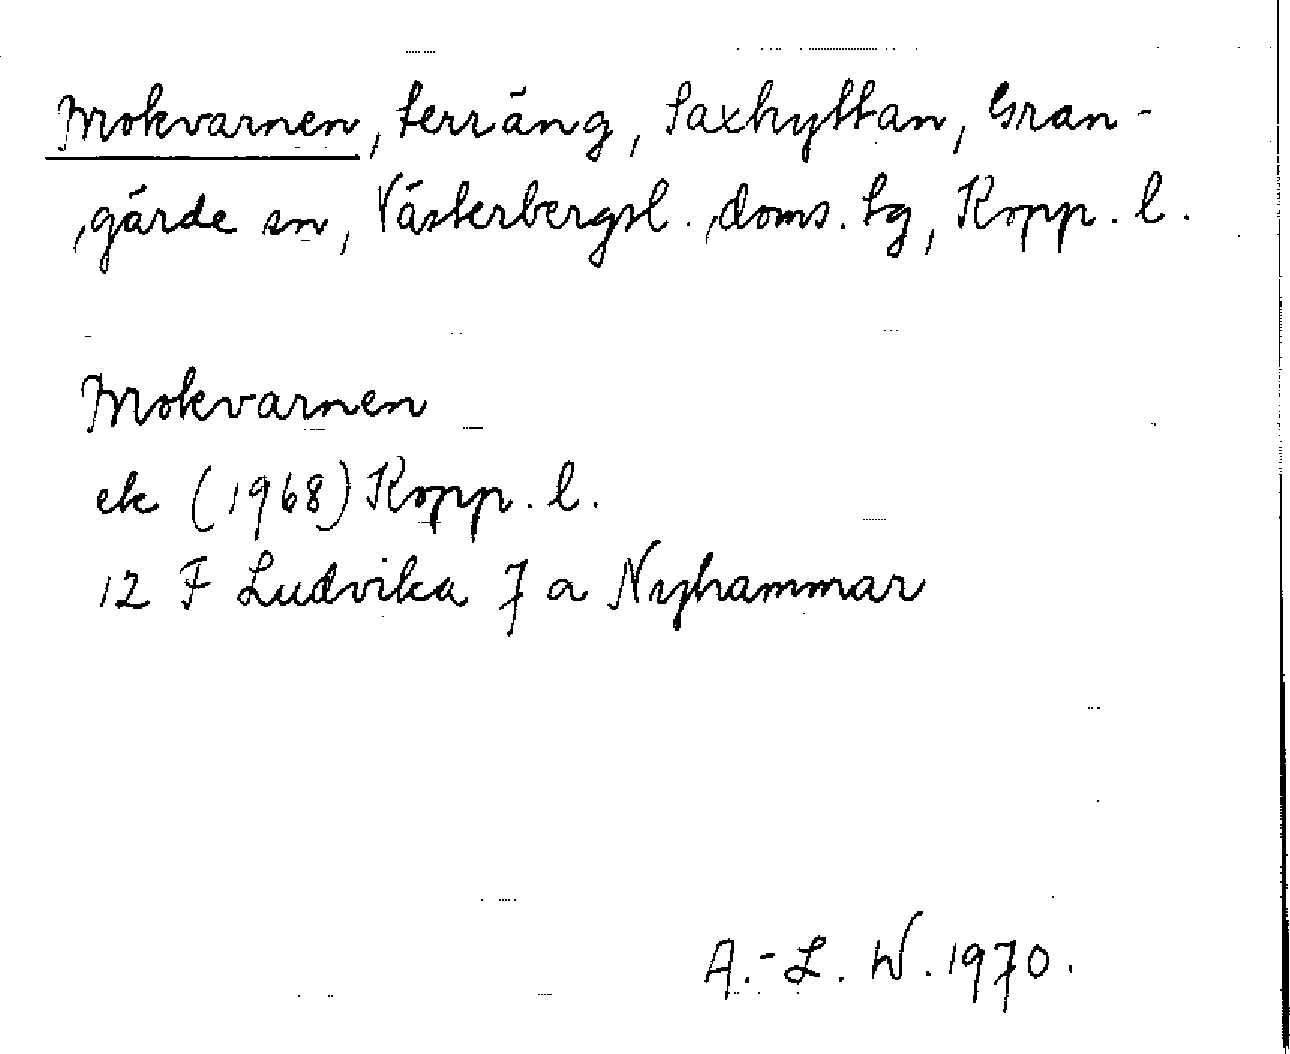 Mokvarnen, terräng, Saxhyttan, Gran-
gärde sn, Västerbergsl. doms. tg, Kopp. l.
Mokvarnen
ek (1968) Kopp. l.
12 F Ludvika 7 a Nyhammar
A.-L. W. 1970.